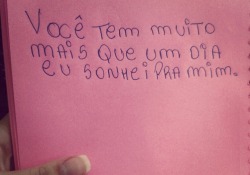 Você tem muito
mais que um dia
eu sonhei pra mim.